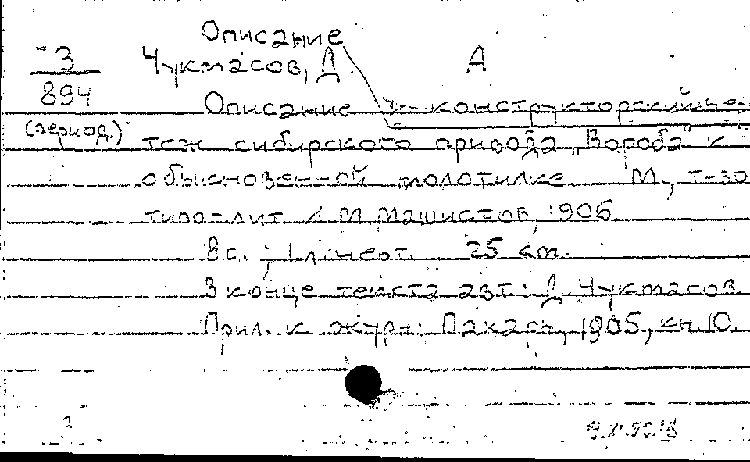 Описание
3 Чукмасов, Д А
894 Описание и конструкторский чер-
(период.) теж сибирского привода „Вороба" к
обыкновенной молотилке М., т-во
типо-лит И.М. Машистов, 1906
8 с.; 1 л. черт. 25 см.
В конце текста авт.: Д. Чукмасов.
Прил. к журн: Пахарь, 1905, кн. 10.